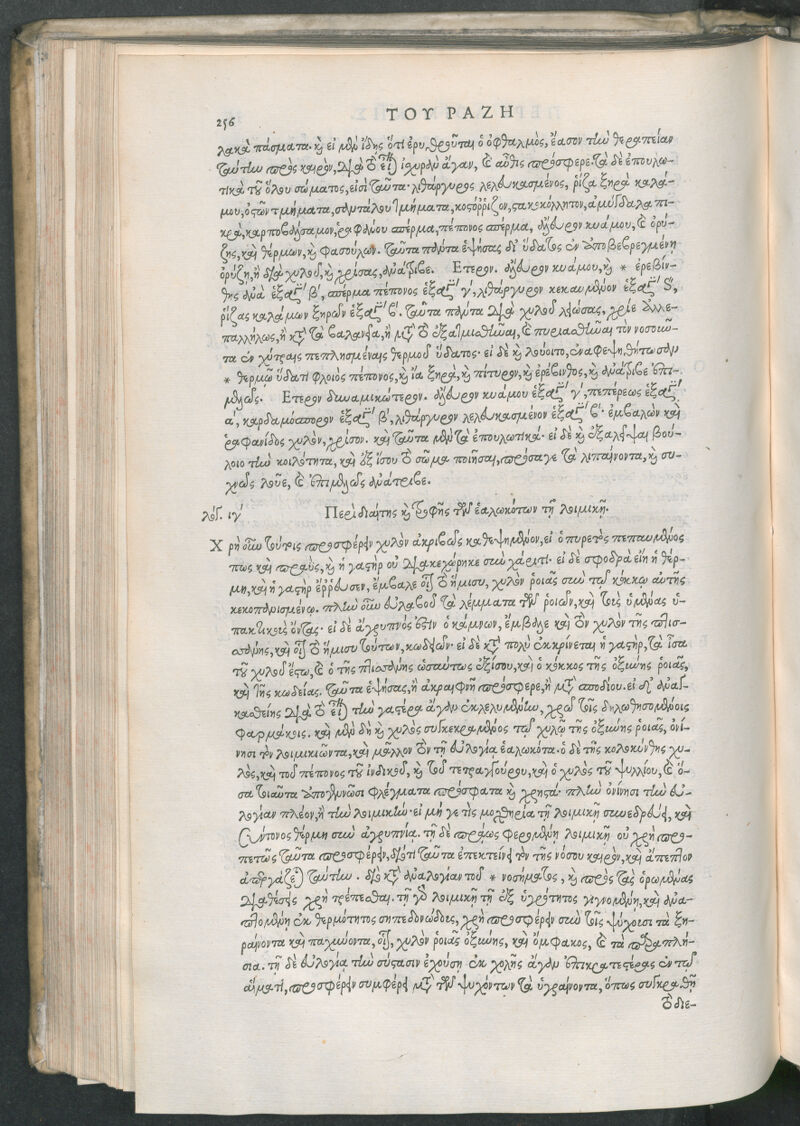 256
ΤΟΥ ΡΑΖΗ
λακὰ πάσματα. καὶ εἰ μὲν ἴδῃς ὅτι ἐρυθροῦται ὁ ὀφθαλμὸς, ἔασον τὴν θεραπείαν
ταύτην πρὸς καιρὸν, διὰ τὸ εἶναι ἰσχυρὰν ἄγαν, καὶ αὖθις πρόσφερε. τὰ δὲ ἐπουλω-
τικὰ τοῦ ὅλου σώματος, εἰσὶ ταῦτα· λιθάργυρος λελευκασμένος, ῥίζα ξηρὰ καλά-
μου, ὀστῶν τμήματα, σαντάλου τμήματα, κοςόρριζον, σαρκοκόλλητον, ἀμύγδαλα πι-
κρὰ, καρποβάλσαμον, ῥαφάνου σπέρμα, πέπονος σπέρμα, ἄλευρον κυάμου, καὶ ὀρύ-
ζης, καὶ θέρμων, καὶ φασούλων. ταῦτα πάντα ἑψήσας δι' ὕδατος ἐν ἀποβεβρεγμένῃ
ὀρύζῃ, ἢ διὰ χυλοῦ, καὶ χρίσας, ἀνάτριβε. Ἕτερον. ἄλευρον κυάμου, καὶ * ἐρεβίν-
θης ἀνὰ ἑξαγ. β', σπέρμα πέπονος ἑξαγ. γ', λιθάργυρον κεκαυμένον ἑξαγ. δ',
ῥίζας καλάμων ξηρῶν ἑξαγ. ϛ'. ταῦτα πάντα διὰ χυλοῦ λειώσας, χρίε ἀλλε-
παλλήλως, ἢ κατὰ τὰ βαλανεῖα, ἢ μετὰ τὸ ἐξατμισθῆναι, καὶ πυριασθῆναι τὸν νοσοῦν-
τα ἐν χύτραις πεπλησμέναις θερμοῦ ὕδατος· εἰ δὲ καὶ λούοιτο, ἐναφεψηθήτω σὺν
* θερμῷ ὕδατι φλοιὸς πέπονος, καὶ ἴα ξηρὰ, καὶ πίτυρον, καὶ ἐρέβινθος, καὶ ἀνάτριβε ἐπι-
μελῶς. Ἕτερον δυναμικώτερον. ἄλευρον κυάμου ἑξαγ. γ', πεπέρεως ἑξαγ.
α', καρδαμόσπορον ἑξαγ. β', λιθάργυρον λελευκασμένον ἑξαγ. ϛ'. ἐμβαλὼν καὶ
ῥαφανίδος χυλὸν, χρίσον. καὶ ταῦτα μὲν τὰ ἐπουλωτικά· εἰ δὲ καὶ ἐξαλεῖψαι βού-
λοιο τὴν κοιλότητα, καὶ ἐξ ἴσου τὸ σῶμα ποιῆσαι, πρόσαγε τὰ λιπαίνοντα, καὶ συ-
χνῶς λοῦε, καὶ ἐπιμελῶς ἀνάτριβε.
λόγ. ιγ' Περὶ διαίτης καὶ τροφῆς τῶν ἑαλωκότων τῇ λοιμικῇ.
Χρὴ οὖν τούτοις προσφέρειν χυλὸν ἀκριβῶς καθεψημένον, εἰ ὁ πυρετὸς πεπαυμένος
πως καὶ πραῢς, καὶ ἡ γαστὴρ οὐ διακεχώρηκε σὺν χάριτι· εἰ δὲ σφοδρὰ εἴη ἡ θέρ-
μη, καὶ ἡ γαστὴρ ἔρρευσεν, ἔμβαλε εἰς τὸ ἥμισυ, χυλὸν ῥοιᾶς σὺν τῷ κόκκῳ αὐτῆς
κεκοπανισμένῳ. πλὴν οὖν εὐλαβοῦ τὰ λέμματα τῶν ῥοιῶν, καὶ τοὺς ὑμένας ὑ-
πακτικοὺς ὄντας· εἰ δὲ ἄγρυπνός ἐστιν ὁ κάμνων, ἔμβαλε καὶ τὸν χυλὸν τῆς πτισ-
σάνης, καὶ εἰς τὸ ἥμισυ τούτων, κωδειῶν· εἰ δὲ κατὰ πολὺ ἐκκρίνεται ἡ γαστὴρ, τὰ ἴσα
τοῦ χυλοῦ ἔστω, καὶ ὁ τῆς πτισσάνης ὡσαύτως ὀξίσου, καὶ ὁ κόκκος τῆς ὀξίνης ῥοιᾶς,
καὶ τῆς κωδείας. ταῦτα ἑψήσας, ἢ ἀκραιφνῆ πρόσφερε, ἢ μετὰ σποδίου. εἰ δ' ἀναγ-
κασθείης διὰ τὸ εἶναι τὴν γαστέρα ἄγαν ἐκλελυμένην, χρῶ τοῖς δηλωθησομένοις
φαρμάκοις. καὶ μὲν δὴ καὶ χυλὸς συγκεκραμένος τῷ χυλῷ τῆς ὀξίνης ῥοιᾶς, ὀνί-
νησι τὸν λοιμικιῶντα, καὶ μᾶλλον τὸν τῇ εὐλογίᾳ ἑαλωκότα· ὁ δὲ τῆς κολοκύνθης χυ-
λὸς, καὶ τοῦ πέπονος τοῦ ἰνδικοῦ, καὶ τοῦ τετραγγούρου, καὶ ὁ χυλὸς τοῦ ψυλλίου, καὶ ὅ-
σα τοιαῦτα ἀπογεννῶσι φλέγματα πρόσφατα καὶ χρηστά· πλὴν ὀνίνησι τὴν εὐ-
λογίαν πλέον, ἢ τὴν λοιμικήν· εἰ μή γε τις μοχθηρία τῇ λοιμικῇ συνεδρεύει, καὶ
σύντονος θέρμη σὺν ἀγρυπνίᾳ. τῇ δὲ πράως φερομένῃ λοιμικῇ οὐ χρὴ προ-
πετῶς ταῦτα προσφέρειν, διότι ταῦτα ἐπεκτείνει τὸν τῆς νόσου καιρὸν, καὶ ἄπεπτον
ἀπεργάζεται ταύτην. διὸ κατὰ ἀναλογίαν τοῦ * νοσήματος, καὶ πρὸς τὰς ὁρωμένας
διαθέσεις χρὴ τρέπεσθαι. τῇ γὰρ λοιμικῇ τῇ ἐξ ὑγρότητος γιγνομένῃ, καὶ ἀνα-
πλομένῃ ἐκ θερμότητος σηπεδονώδους, χρὴ προσφέρειν σὺν τοῖς ψύχουσι τὰ ξη-
ραίνοντα καὶ παχύνοντα, οἷον, χυλὸν ῥοιᾶς ὀξίνης, καὶ ὄμφακος, καὶ τὰ παραπλή-
σια. τῇ δὲ εὐλογίᾳ τὴν σύστασιν ἐχούσῃ ἐκ χολῆς ἄγαν ἐπικρατεστέρας ἐν τῷ
αἵματι, προσφέρειν συμφέρει μετὰ τῶν ψυχόντων τὰ ὑγραίνοντα, ὅπως συγκραθῇ
τὸ διε-